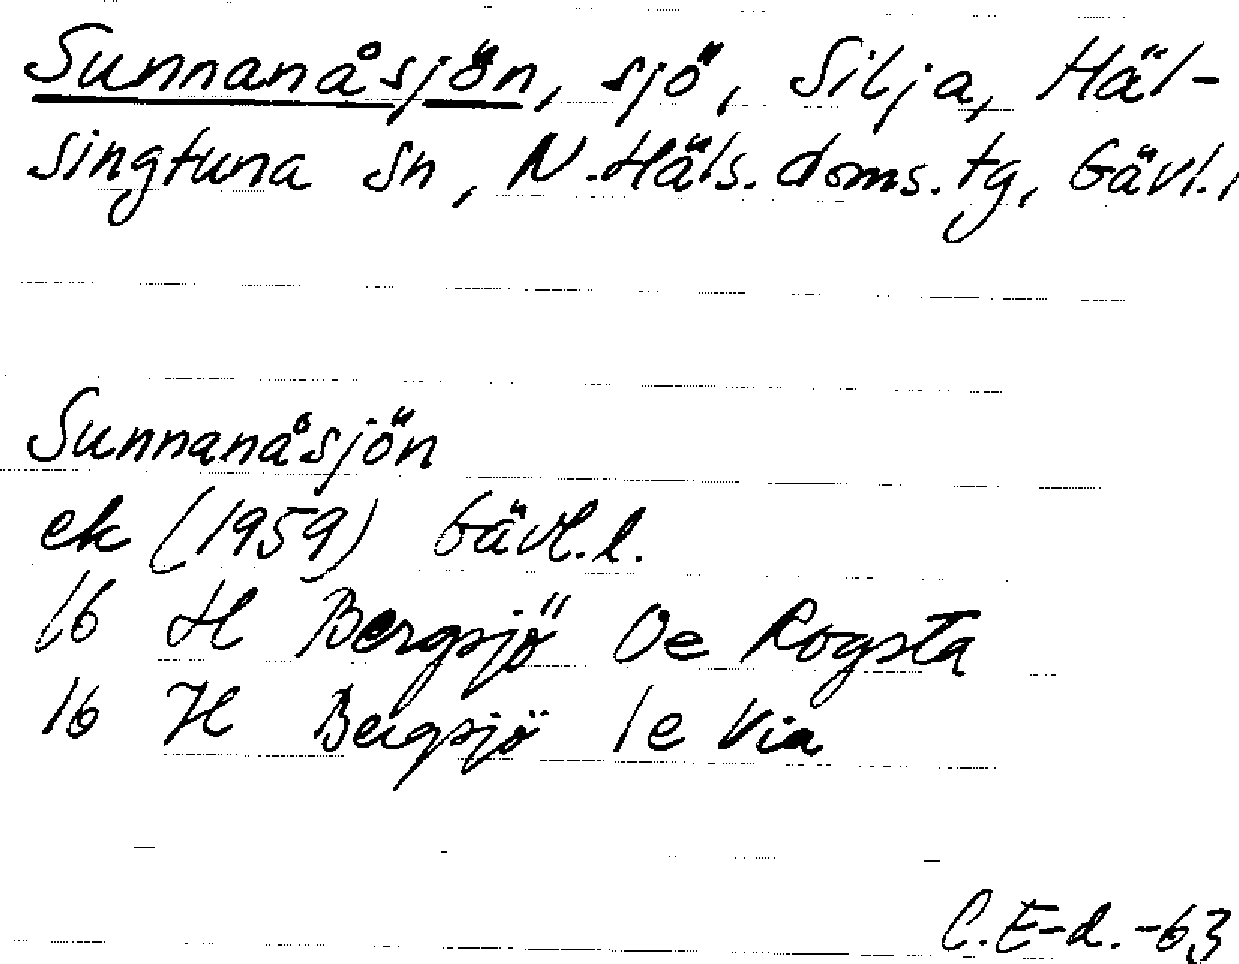 Sunnanåsjön, sjö, Silja, Häl-
singtuna sn, N.Häls. doms.tg, Gävl.l
Sunnanåsjön
ek (1959) Gävl.l.
16 H Bergsjö 0e Rogsta
16 H Bergsjö 1e Via
C.E-d.-63